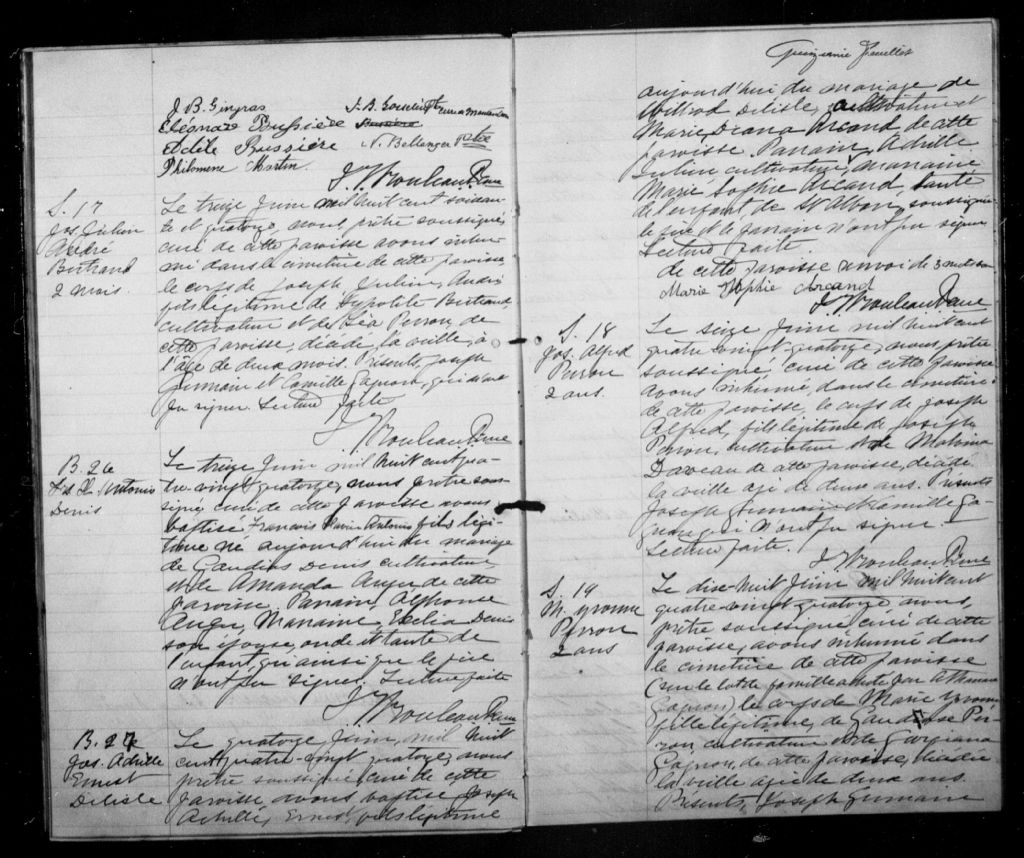 J. B. Gingras
Eléonare Bussière
Adèle Bussière
Philomène Martin
J. B. Gosselin Ptre curé
Bussière
N. Bellanger Ptre
J. Rouleau Ptre
S. 17
Jos. Julien
André
Bertrand
2 mois.
Le treize Juin mil huit cent soixan-
te et quatorze, nous, prêtre soussigné,
curé de cette paroisse avons inhu-
mé dans le cimetière de cette paroisse
le corps de Joseph Julien, André
fils légitime de Hypolite Bertrand
cultivateur et de Léa Perron, de
cette paroisse, décédé la veille, à
l'âge de deux mois. Présents, Joseph
Germain et Camille Gagnon, qui n'ont
pu signer. Lecture faite
J. Rouleau Ptre
B. 26
Frs X. Antonio
Denis
Le treize Juin mil huit cent qua-
tre-vingt quatorze, nous prêtre sous-
signé, curé de cette paroisse avons
baptisé François Xavier Antonio fils légi-
time né aujourd'hui du mariage
de Gaudias Denis cultivateur
et de Amanda Auger de cette
paroisse, Parrain, Alphonse
Auger, Marraine, Exelia Denis
son épouse, oncle et tante de
l'enfant, qui ainsi que le père
n'ont pu signer. Lecture faite
J. Rouleau Ptre
B. 27
Jos. Achille
Ernest
Delisle
Le quatorze Juin, mil huit
cent quatre-vingt quatorze, nous
prêtre soussigné curé de cette
paroisse, avons baptisé Joseph
Achille, Ernest, fils légitime
Quinzième Feuillet
aujourd'hui du mariage de
Wilfrod Delisle, cultivateur et
Marie Diana Arcand, de cette
paroisse. Parrain, Achille
Julien cultivateur, Marraine
Marie Sophie Arcand, tante
de l'enfant, de St Alban, soussignée
le père et le parrain n'ont pu signer
Lecture faite.
de cette paroisse renvoi de 3 mots bon
Marie Sophie Arcand
J. Rouleau Ptre
S. 18
Jos. Alfred
Perron
2 ans.
Le seize Juin mil huit cent
quatre-vingt-quatorze, nous, prêtre
soussigné, curé de cette paroisse
avons inhumé, dans le cimetière
de cette paroisse, le corps de Joseph
Alfred, fils légitime de Joseph
Perron, cultivateur et de Malvina
Daveau de cette paroisse, décédé
la veille agé de deux ans. Présents
Joseph Germain et Camille Ga-
gnon qui n'ont pu signer
Lecture faite.
J. Rouleau Ptre
S. 19
M. Yvonne
Perron
2 ans
Le dix-huit Juin mil huit cent
quatre-vingt quatorze, nous,
prêtre soussigné curé de cette
paroisse, avons inhumé dans
le cimetière de cette paroisse
(dans le lot de famille Athanase
Gagnon) le corps de Marie Yvonne
fille légitime, de Gaudiose Per-
ron, cultivateur et de Georgiana
Gagnon, de cette paroisse, décédée
la veille agée de deux ans.
Présents, Joseph Germain